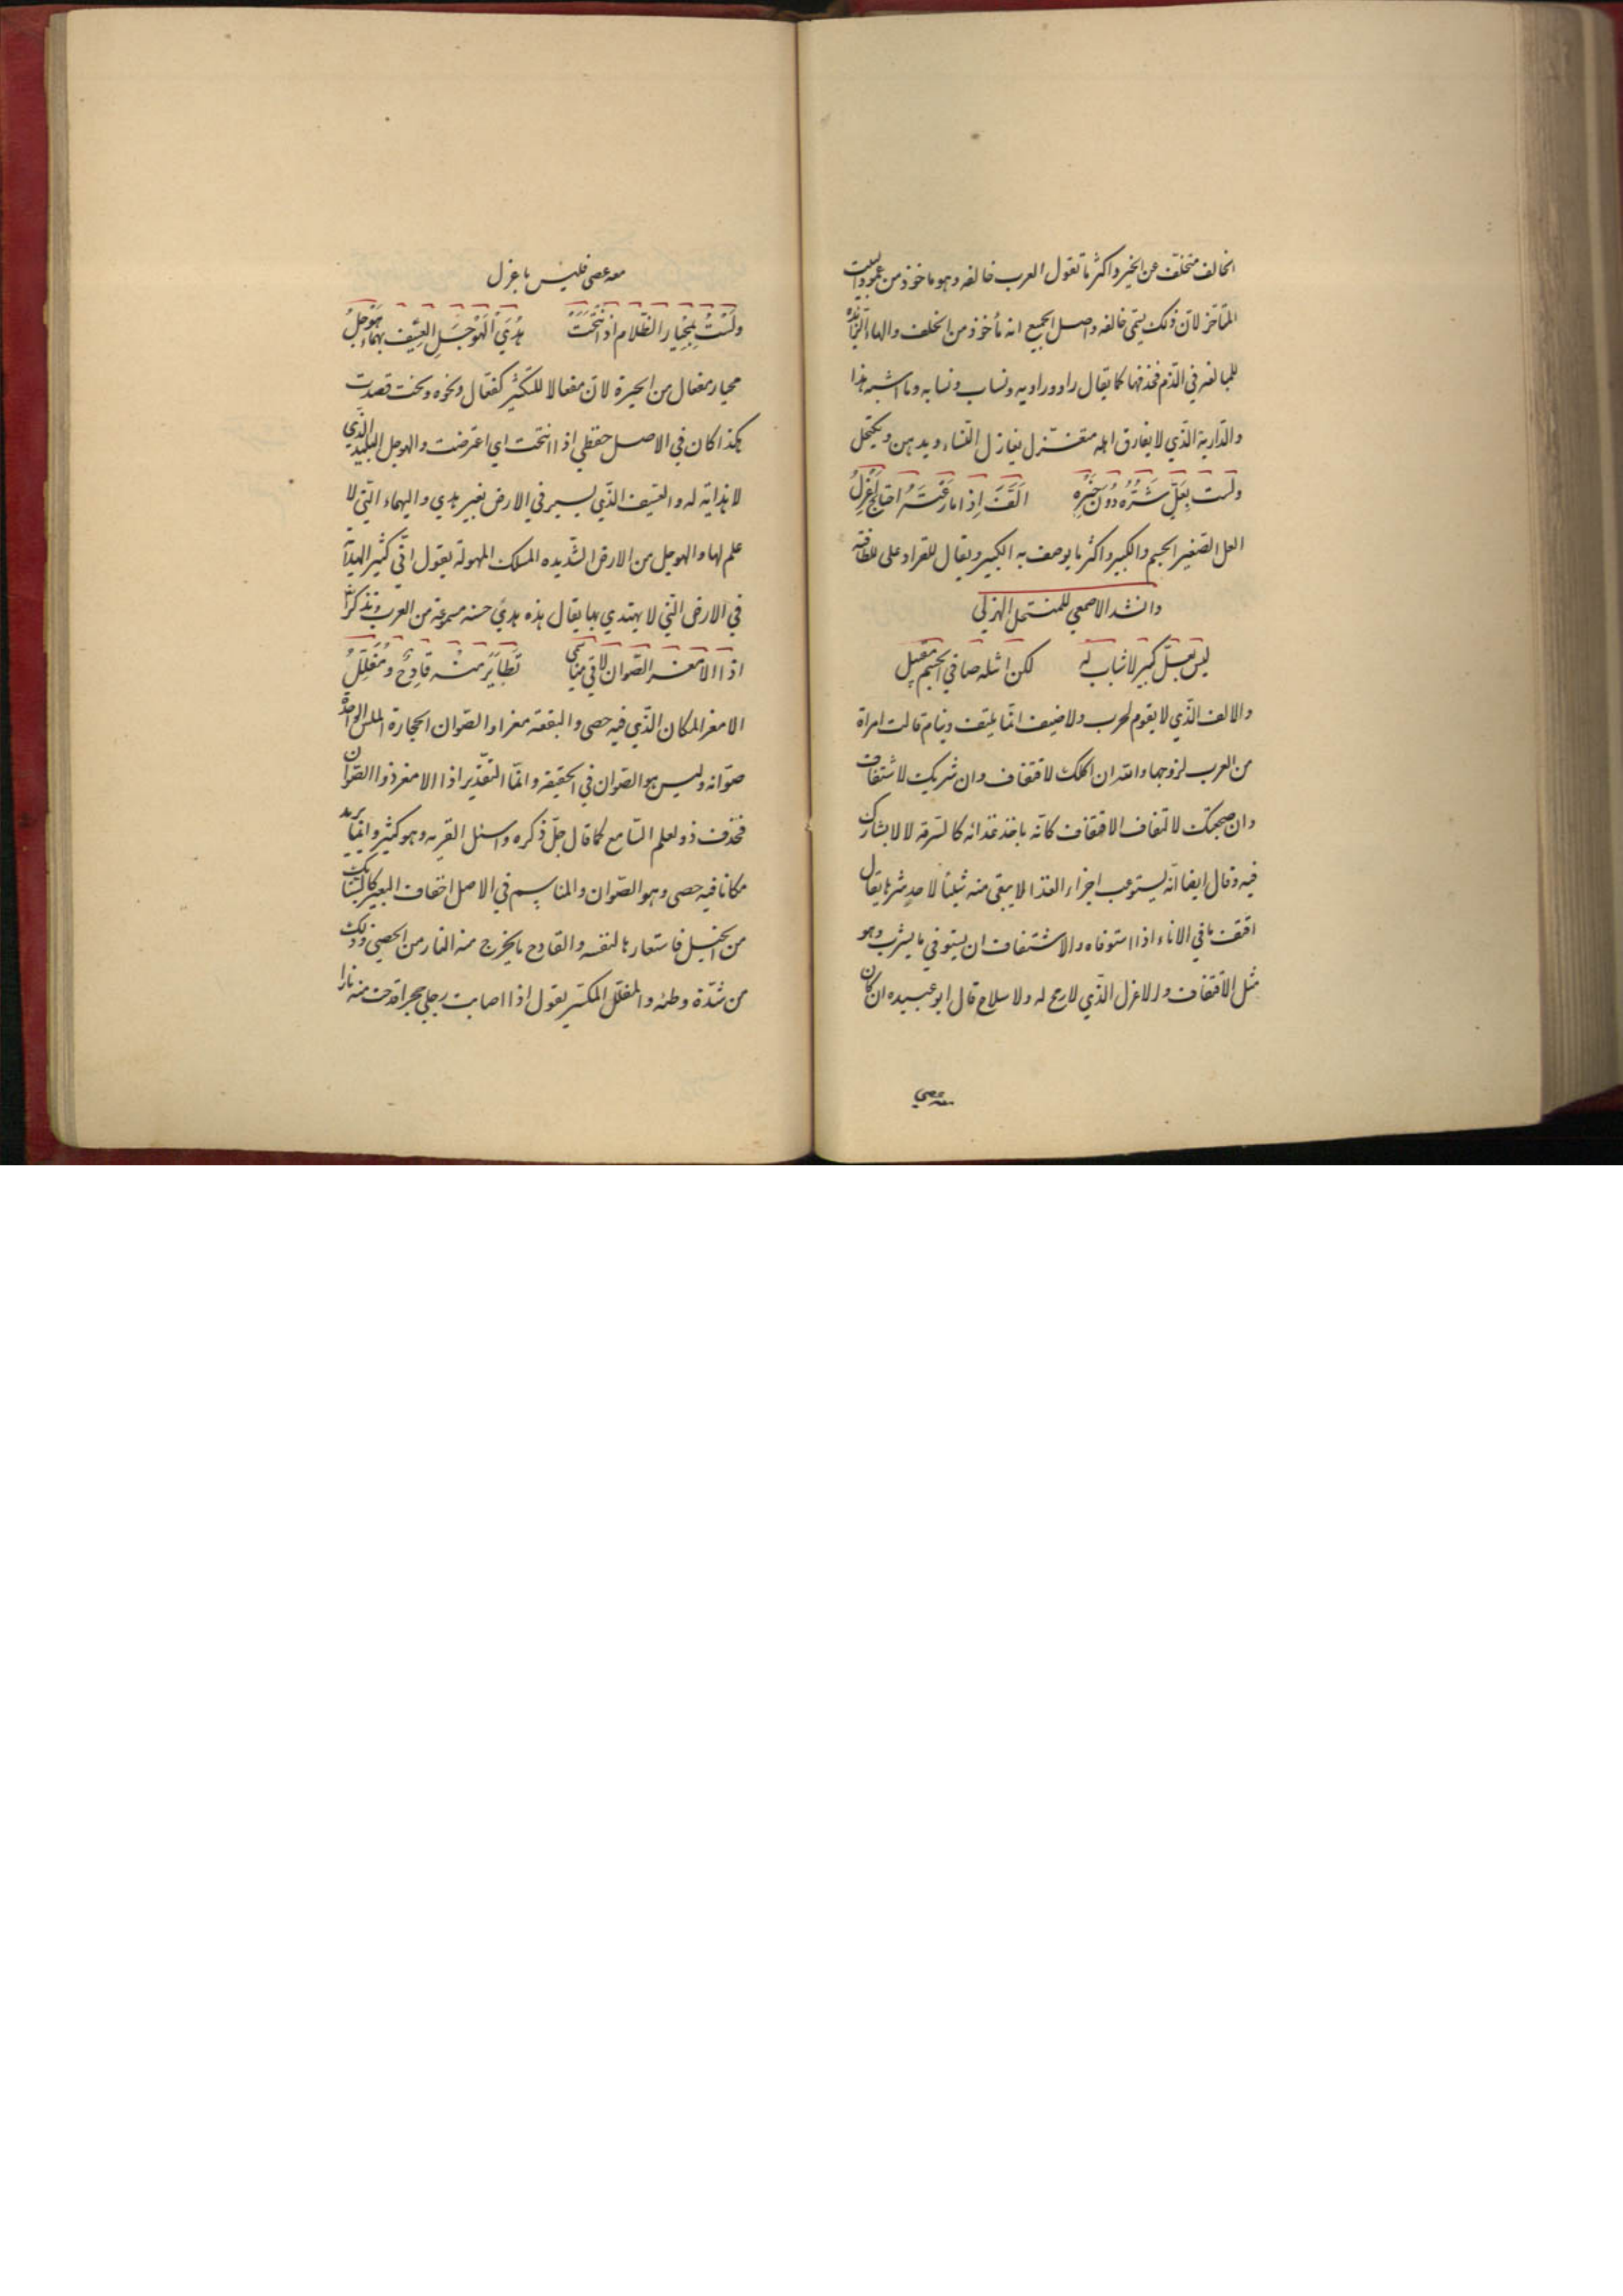 الخالف متخلّف عن الخير واكثر ما تقول العرب خالفه وهو ماخوذ من عمود البيت
المتاخر لانّ ذلك يسمّى خالفه واصل الجميع انه مأخوذ من الخلف والهاء الزائده
للمبالغه في الذّم فحذفها كما يقال راو وراويه ونساب ونسابه وما اشبه هذا
والدّارية الّذي لا يفارق اهله متغزل يغازل النّساء ويدهن ويكتحل
ولست بِعَلٍّ شَرُّهُ دُونَ خَيْرِهِ الَفَّ اِذا ما رُعْتَهُ اهتاج اَعْزَلُ
العل الصّغير الجسم والكبير واكثر ما يوصف به الكبير ويقال للقراد على للطافته
وانشد الاصمعي للمنتحل الهزلي
ليس بعلّ كبير لا شباب له لكن اثيله صافي الجسم مقبل
والالف الذّي لا يقوم لحرب ولا ضيف انّما يلتف وينام قالت امراة
من العرب لزوجها والله ان اكلك لاقتفاف وان شربك لاشتفاف
وان ضجعتك لالتفاف الاقتفاف كانّه ياخذ غذائه كالسّرقه لا لا يشارك
فيه وقال ايضا انّه يستوعب اجزاء الغذا لا يبقى منه شيئا لاحد شرها يقال
اقتف ما في الاناء اذا استوفاه والاشتفاف ان يستوفي ما يشرب وهو
مثل الاقتفاف والاعزل الذّي لا رمح له ولا سلاح قال ابو عبيده ان كان
معه عصي
معه عصى فليس باعزل
ولَسْتُ بِمِحْيارِ الظّلام اذ انْتَحَتْ هُدَيَ الهَوْجَلِ العِسّيفِ يهماءُ هَوْجلُ
محيار مفعال من الحيرة لانّ مفعالا للتكثير كفعّال ونحوه ونحت قصدت
هكذا كان في الاصل حفظي اذا انتحت اي اعترضت والهوجل البليد الّذي
لا هداية له والعسّيف الذّي يسير في الارض بغير هدي واليهماء الّتي لا
علم لها والهوجل من الارض الشّديده المسلك المهولة يقول انّي كثير الهداية
في الارض التّي لا يهتدي بها يقال هذه هديً حسنه مسموعة من العرب وتذكر اذا
اذا الامعز الصّوان لاقى مناسمي تَطايَرَ منْه قادِحٌ ومُفَلَّلُ
الامعز المكان الذّي فيه حصى والبقعه معزا والصّوان الحجارة الملس الواحدة
صوّانه وليس هو الصّوان في الحقيقه وانمّا التقدير اذا الامعز ذو الصّوان
فحذف ذو لعلم السّامع كما قال جلّ ذكره واسئل القريه وهو كثير وانما يريد
مكانا فيه حصى وهو الصّوان والمناسم في الاصل اخفاف البعير كالسّنابك
من الخيل فاستعارها لنفسه والقادح ما يخرج منه النار من الحصى وذلك
من شدّة وطئه والمفلّل المكسّر يقول اذا اصابت رجلي حجرا قدحت منه نارا